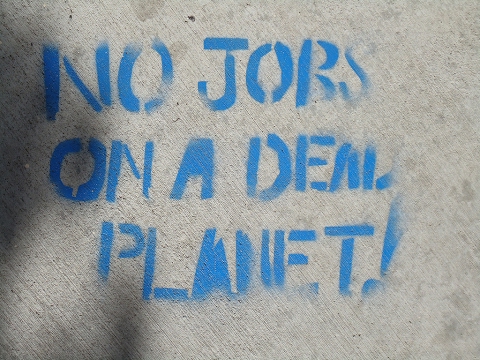 NO JOBS
ON A DEAD
PLANET!